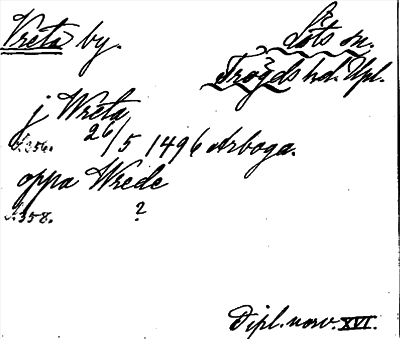 Vreta by. Löts sn.
Trögds hd. Upl.
j Wreta
N.256. 26/5 1496 Arboga.
oppa Wrede
N.358. ?
Dipl. norv. XVI.